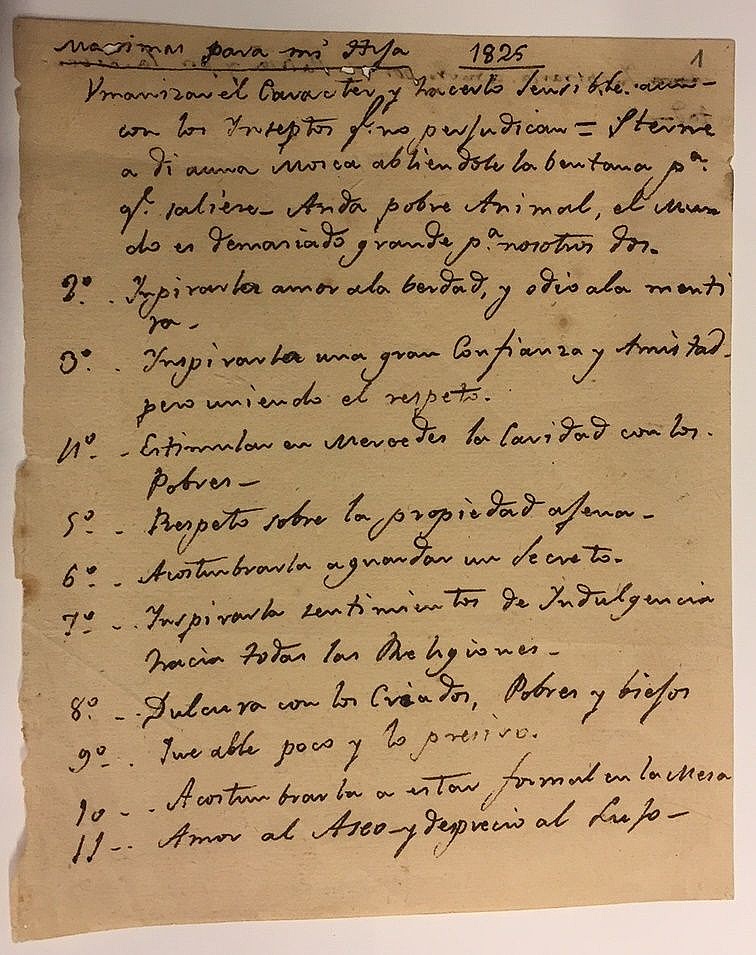 Maximas para mi Hija 1825 1
Vmanizar él Caracter y hacerlo sensible aun
con los Inseptos q.e no perjudican = Sterne
a di auna Mosca abliendole la bentana p.a
q.e saliese - Anda pobre Animal, el Mun
do es demasiado grande p.a nosotros dos.
2.º - Inpirarla amor ala berdad, y odio ala menti
ra -
3.º - Inspirarla una gran Confianza y Amistad
pero uniendo el respeto.
4.º - Estimular en Mercedes la Caridad con los
Pobres -
5.º - Respeto sobre la propiedad ajena -
6.º - Acostumbrarla a guardar un Secreto.
7.º - Inspirarla sentimientos de Indulgencia
hacia todas las Religiones -
8.º - Dulcura con los Criados, Pobres y biejos
9.º - Que able poco y lo presiso.
10 - Acostumbrarla a estar formal en la Mesa
11 - Amor al Aseo y desprecio al Lujo -